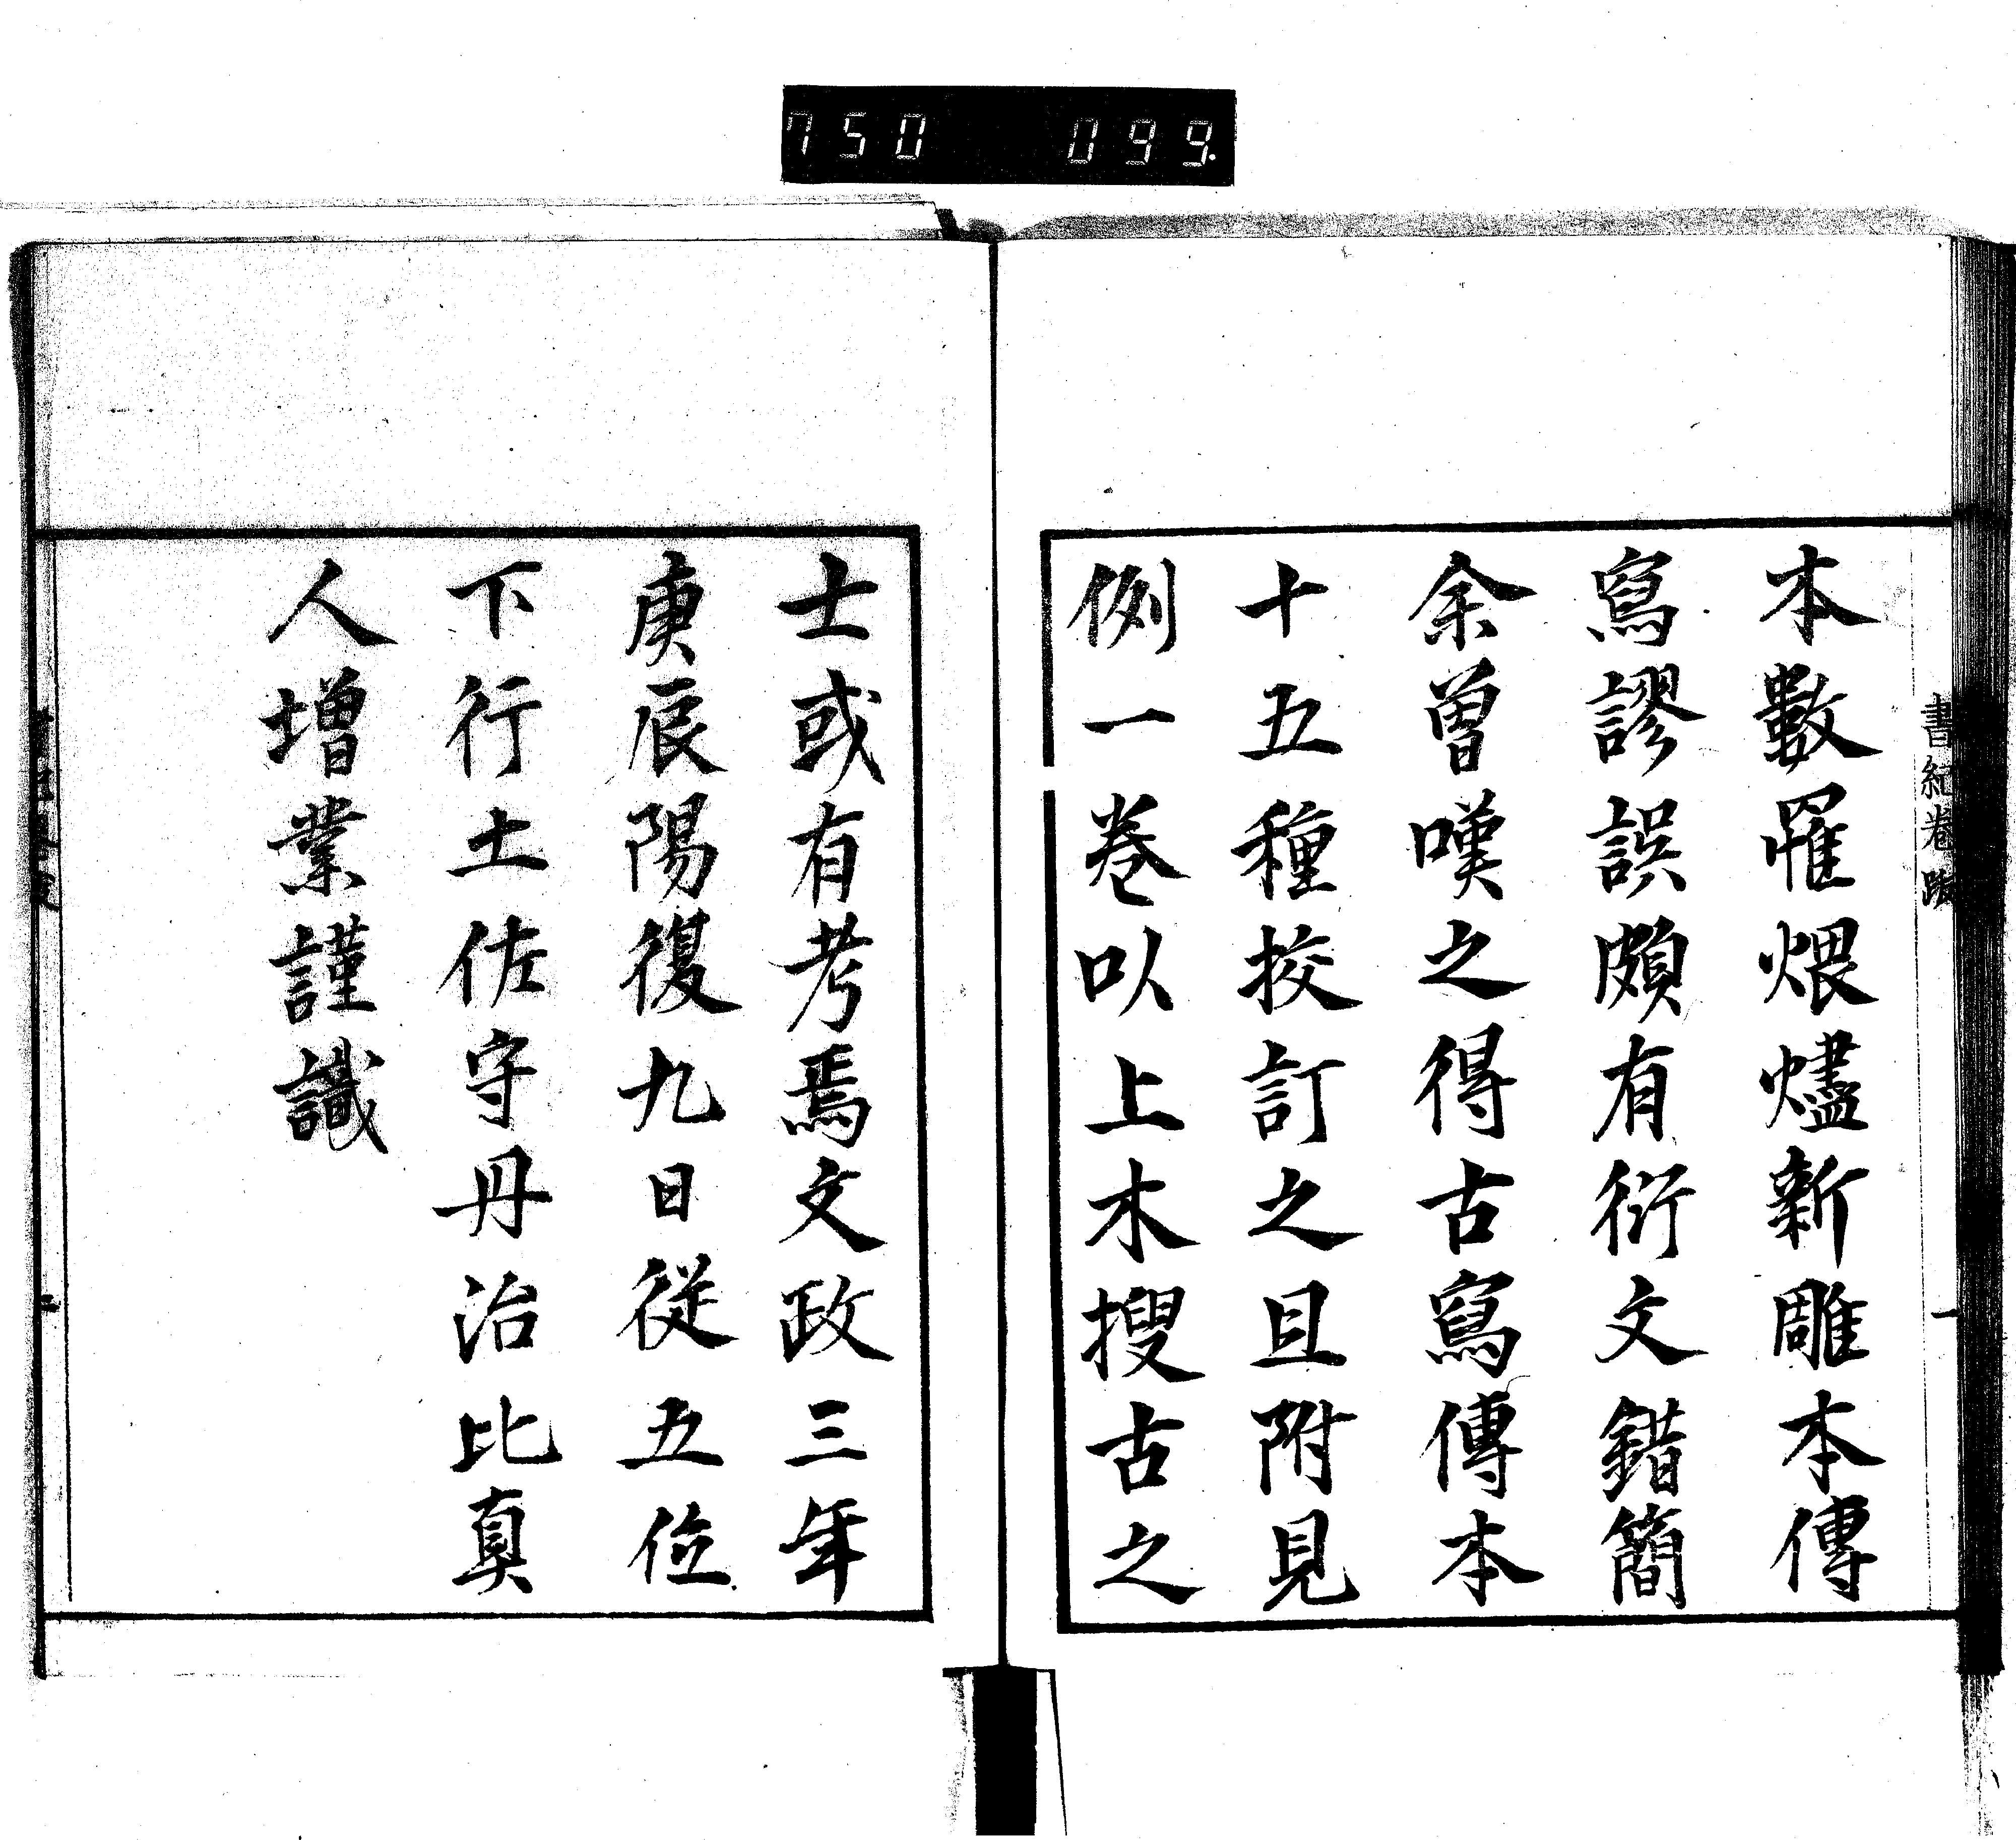 750 099.
書紀卷跋
一
本數罹煨燼新雕本傳
寫謬誤頗有衍文錯簡
余曾嘆之得古寫傳本
十五種挍訂之且附見
例一卷以上木搜古之
士或有考焉文政三年
庚辰陽復九日從五位
下行土佐守丹治比真
人增業謹識